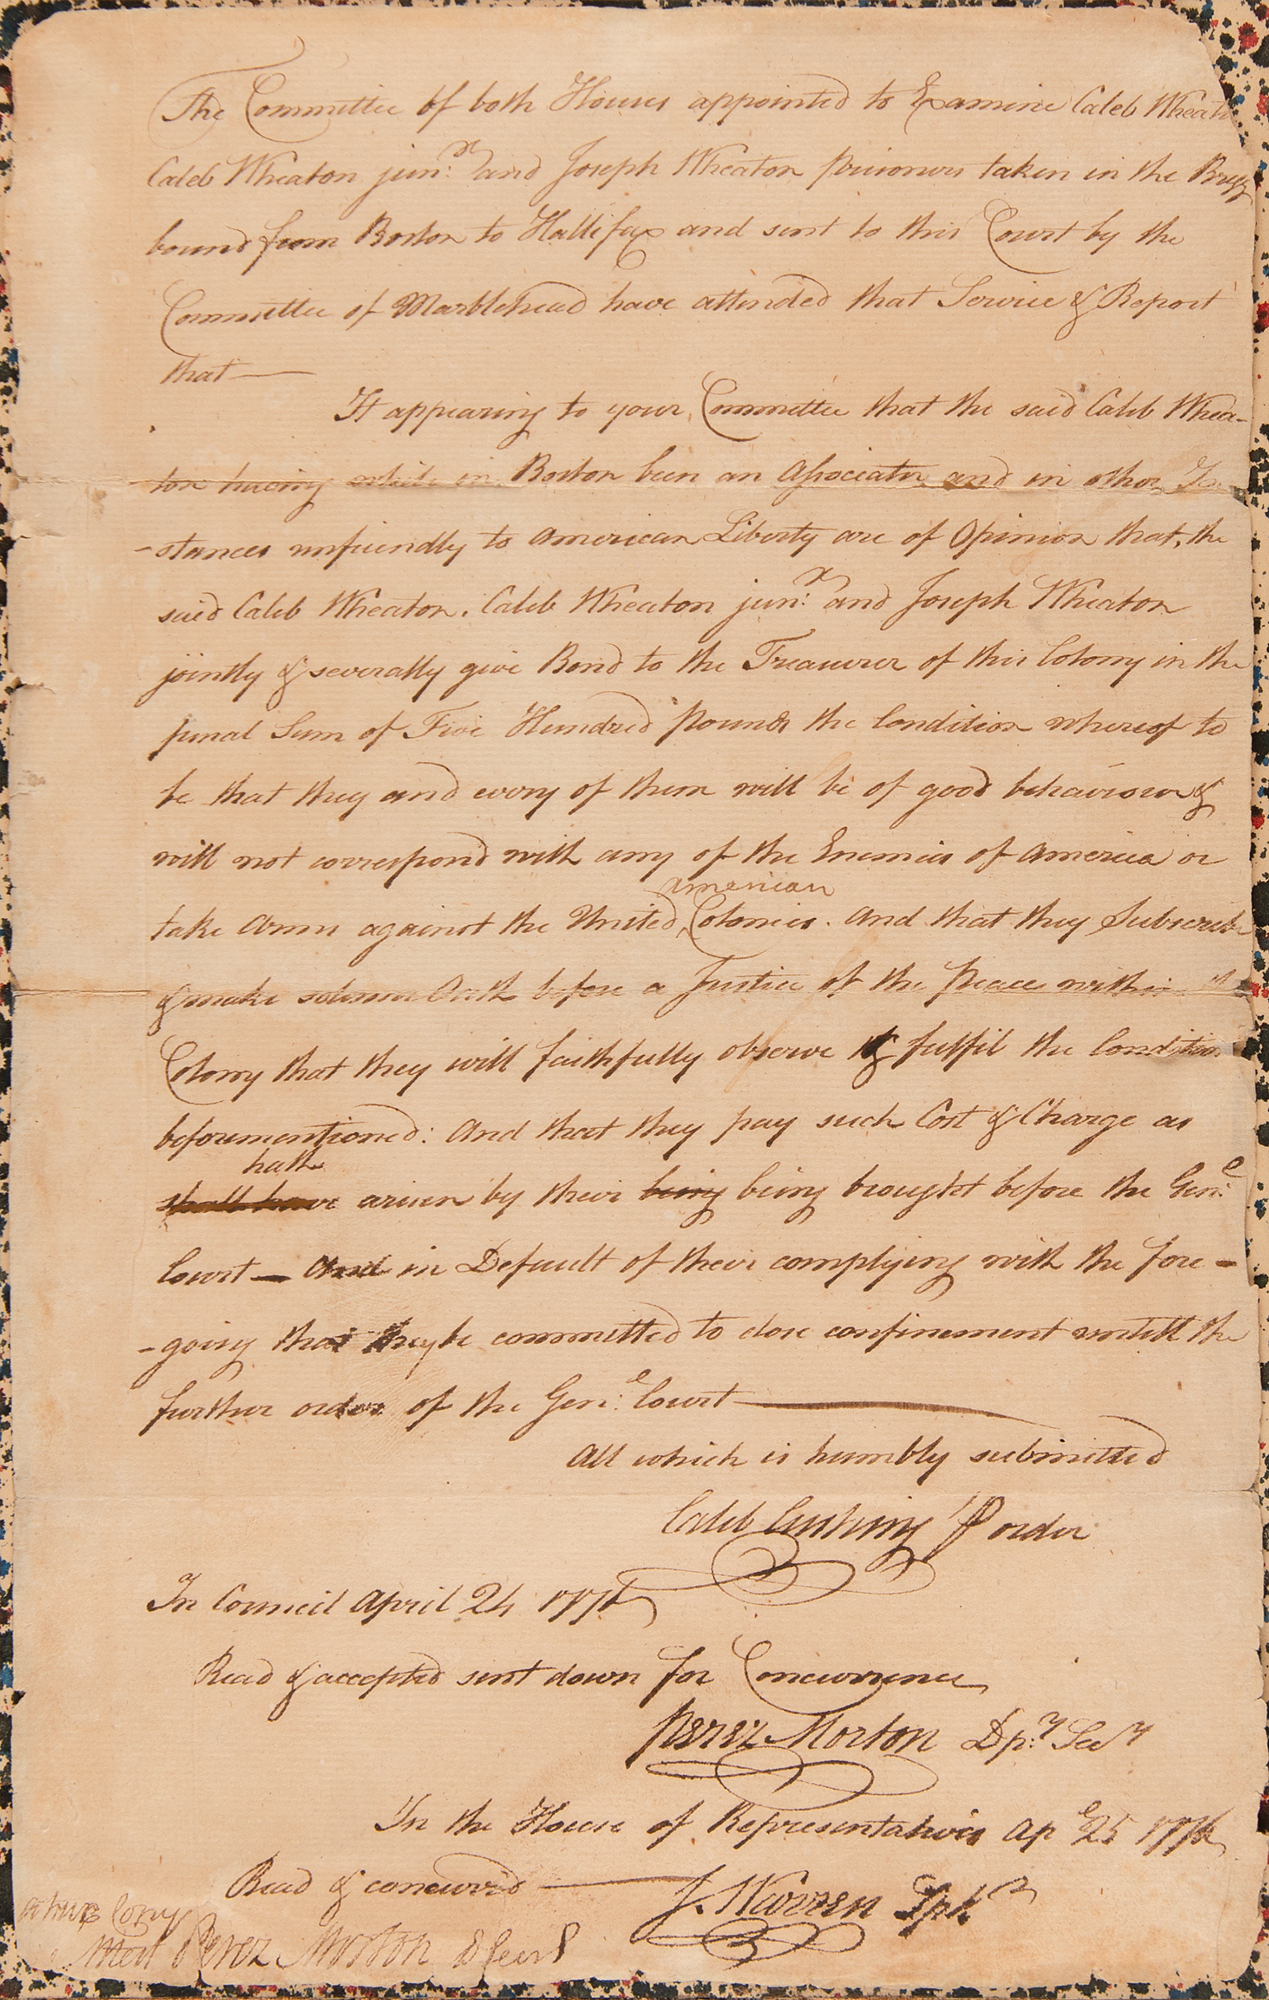 The Committee of both Houses appointed to Examine Caleb Wheat
Caleb Wheaton junr. and Joseph Wheaton prisoners taken in the Brigg
bound from Boston to Hallifax and sent to this Court by the
Committee of Marblehead have attended that Service & Report
that —
It appearing to your Committee that the said Caleb Whea-
ton having while in Boston been an Associator and in other In
-stances unfriendly to American Liberty are of Opinion that, the
said Caleb Wheaton, Caleb Wheaton junr. and Joseph Wheaton
jointly & severally give Bond to the Treasurer of this Colony in the
penal Sum of Five Hundred Pounds the Condition whereof to
be that they and every of them will be of good behaviour &
will not correspond with any of the Enemies of America or
american
take Arms against the United Colonies. And that they Subscribe
& make solemn Oath before a Justice of the Peace within th
Colony that they will faithfully observe & fulfil the Condition
beforementioned: And that they pay such Cost & Charge as
hath
shall have arisen by their being being brought before the Genl.
Court — And in Default of their complying with the fore-
-going that they be committed to close confinement untill the
further order of the Genl. Court —
All which is humbly submitted
Caleb Cushing P order
In Council April 24 1776
Read & accepted sent down for Concurrence
Perez Morton Dpy. Secy
In the House of Representatives Apl 25 1776
Read & concurrd —
J. Warren Spkr
a true Copy
Attest Perez Morton D Secry